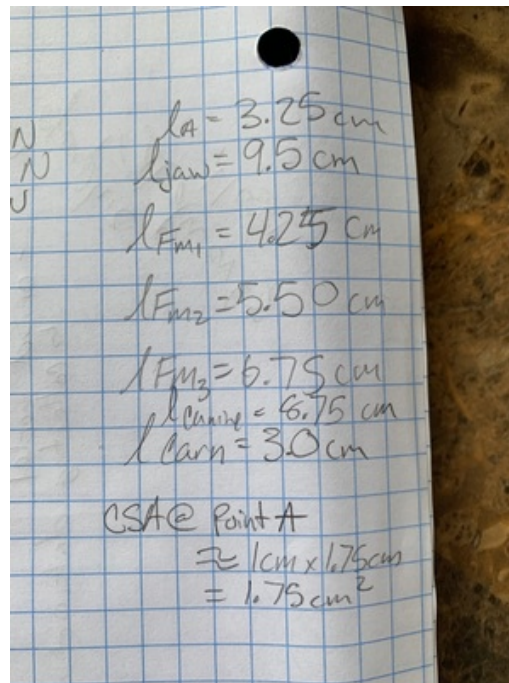 l_A = 3.25 cm
N
l_jaw = 9.5 cm
N
l_Fm₁ = 4.25 cm
l_Fm₂ = 5.50 cm
l_Fm₃ = 6.75 cm
l_canine = 8.75 cm
l_carn = 3.0 cm
CSA @ Point A
≈ 1cm x 1.75cm
= 1.75 cm²